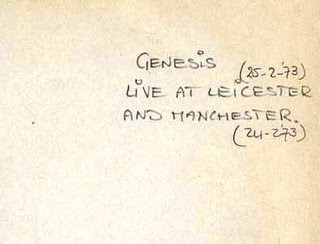 GENESIS (25-2-'73)
LIVE AT LEICESTER
AND MANCHESTER.
(24-2-'73)